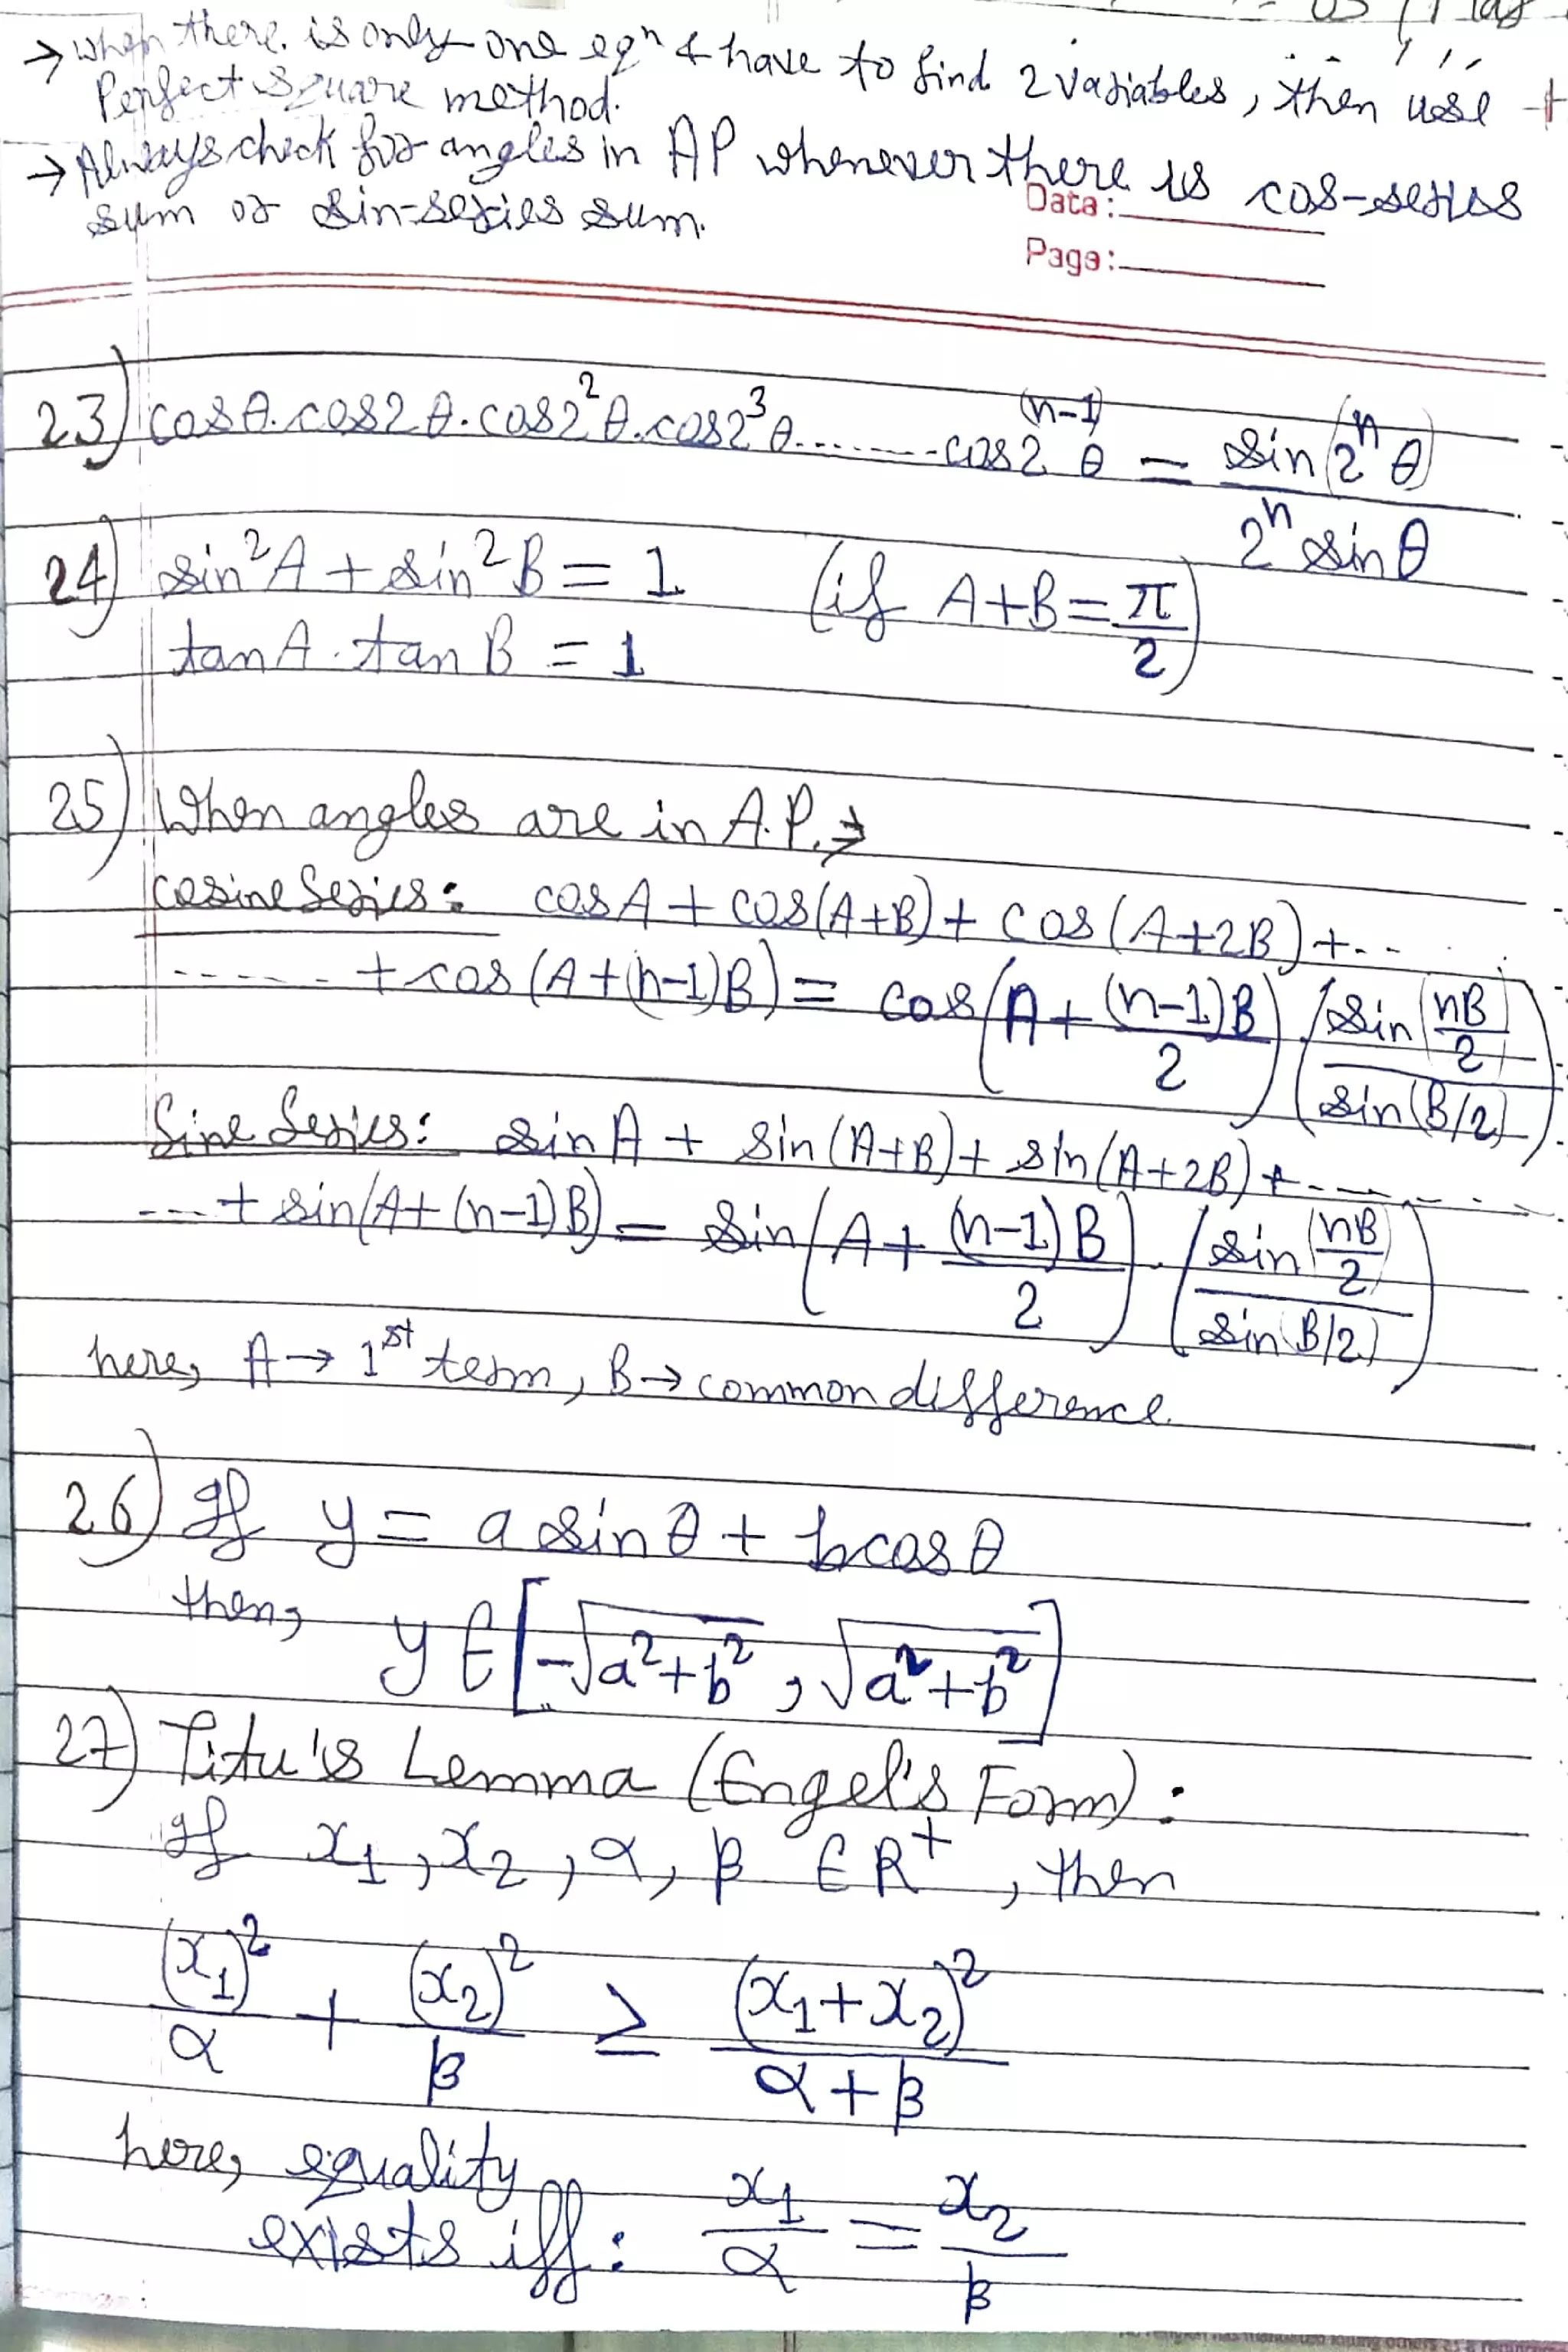 → when there is only one eqⁿ & have to find 2 variables, then use
Perfect square method.
→ Always check for angles in AP whenever there is cos-series
sum or sin-series sum.
Data:
Page:
23) cosθ.cos2θ.cos2²θ.cos2³θ.......cos2⁽ⁿ⁻¹⁾θ = sin(2ⁿθ)/2ⁿ sinθ
24) sin²A + sin²B = 1 (if A+B = π/2)
tanA. tan B = 1
25) When angles are in A.P. →
Cosine Series: cosA + cos(A+B) + cos(A+2B) +..
...... + cos(A+(n-1)B) = cos(A + (n-1)B/2) (sin(nB/2)/sin(B/2))
Sine Series: sin A + sin(A+B) + sin(A+2B) +.......
...+ sin(A+(n-1)B) = sin(A + (n-1)B/2).(sin(nB/2)/sin(B/2))
here, A → 1ˢᵗ term, B → common difference
26) If y = a sinθ + b cosθ
then, y ∈ [-√a²+b², √a²+b²]
27) Titu's Lemma (Engel's Form):
If x₁, x₂, α, β ∈ R⁺, then
(x₁)²/α + (x₂)²/β ≥ (x₁+x₂)²/α+β
here, equality
exists iff: x₁/α = x₂/β